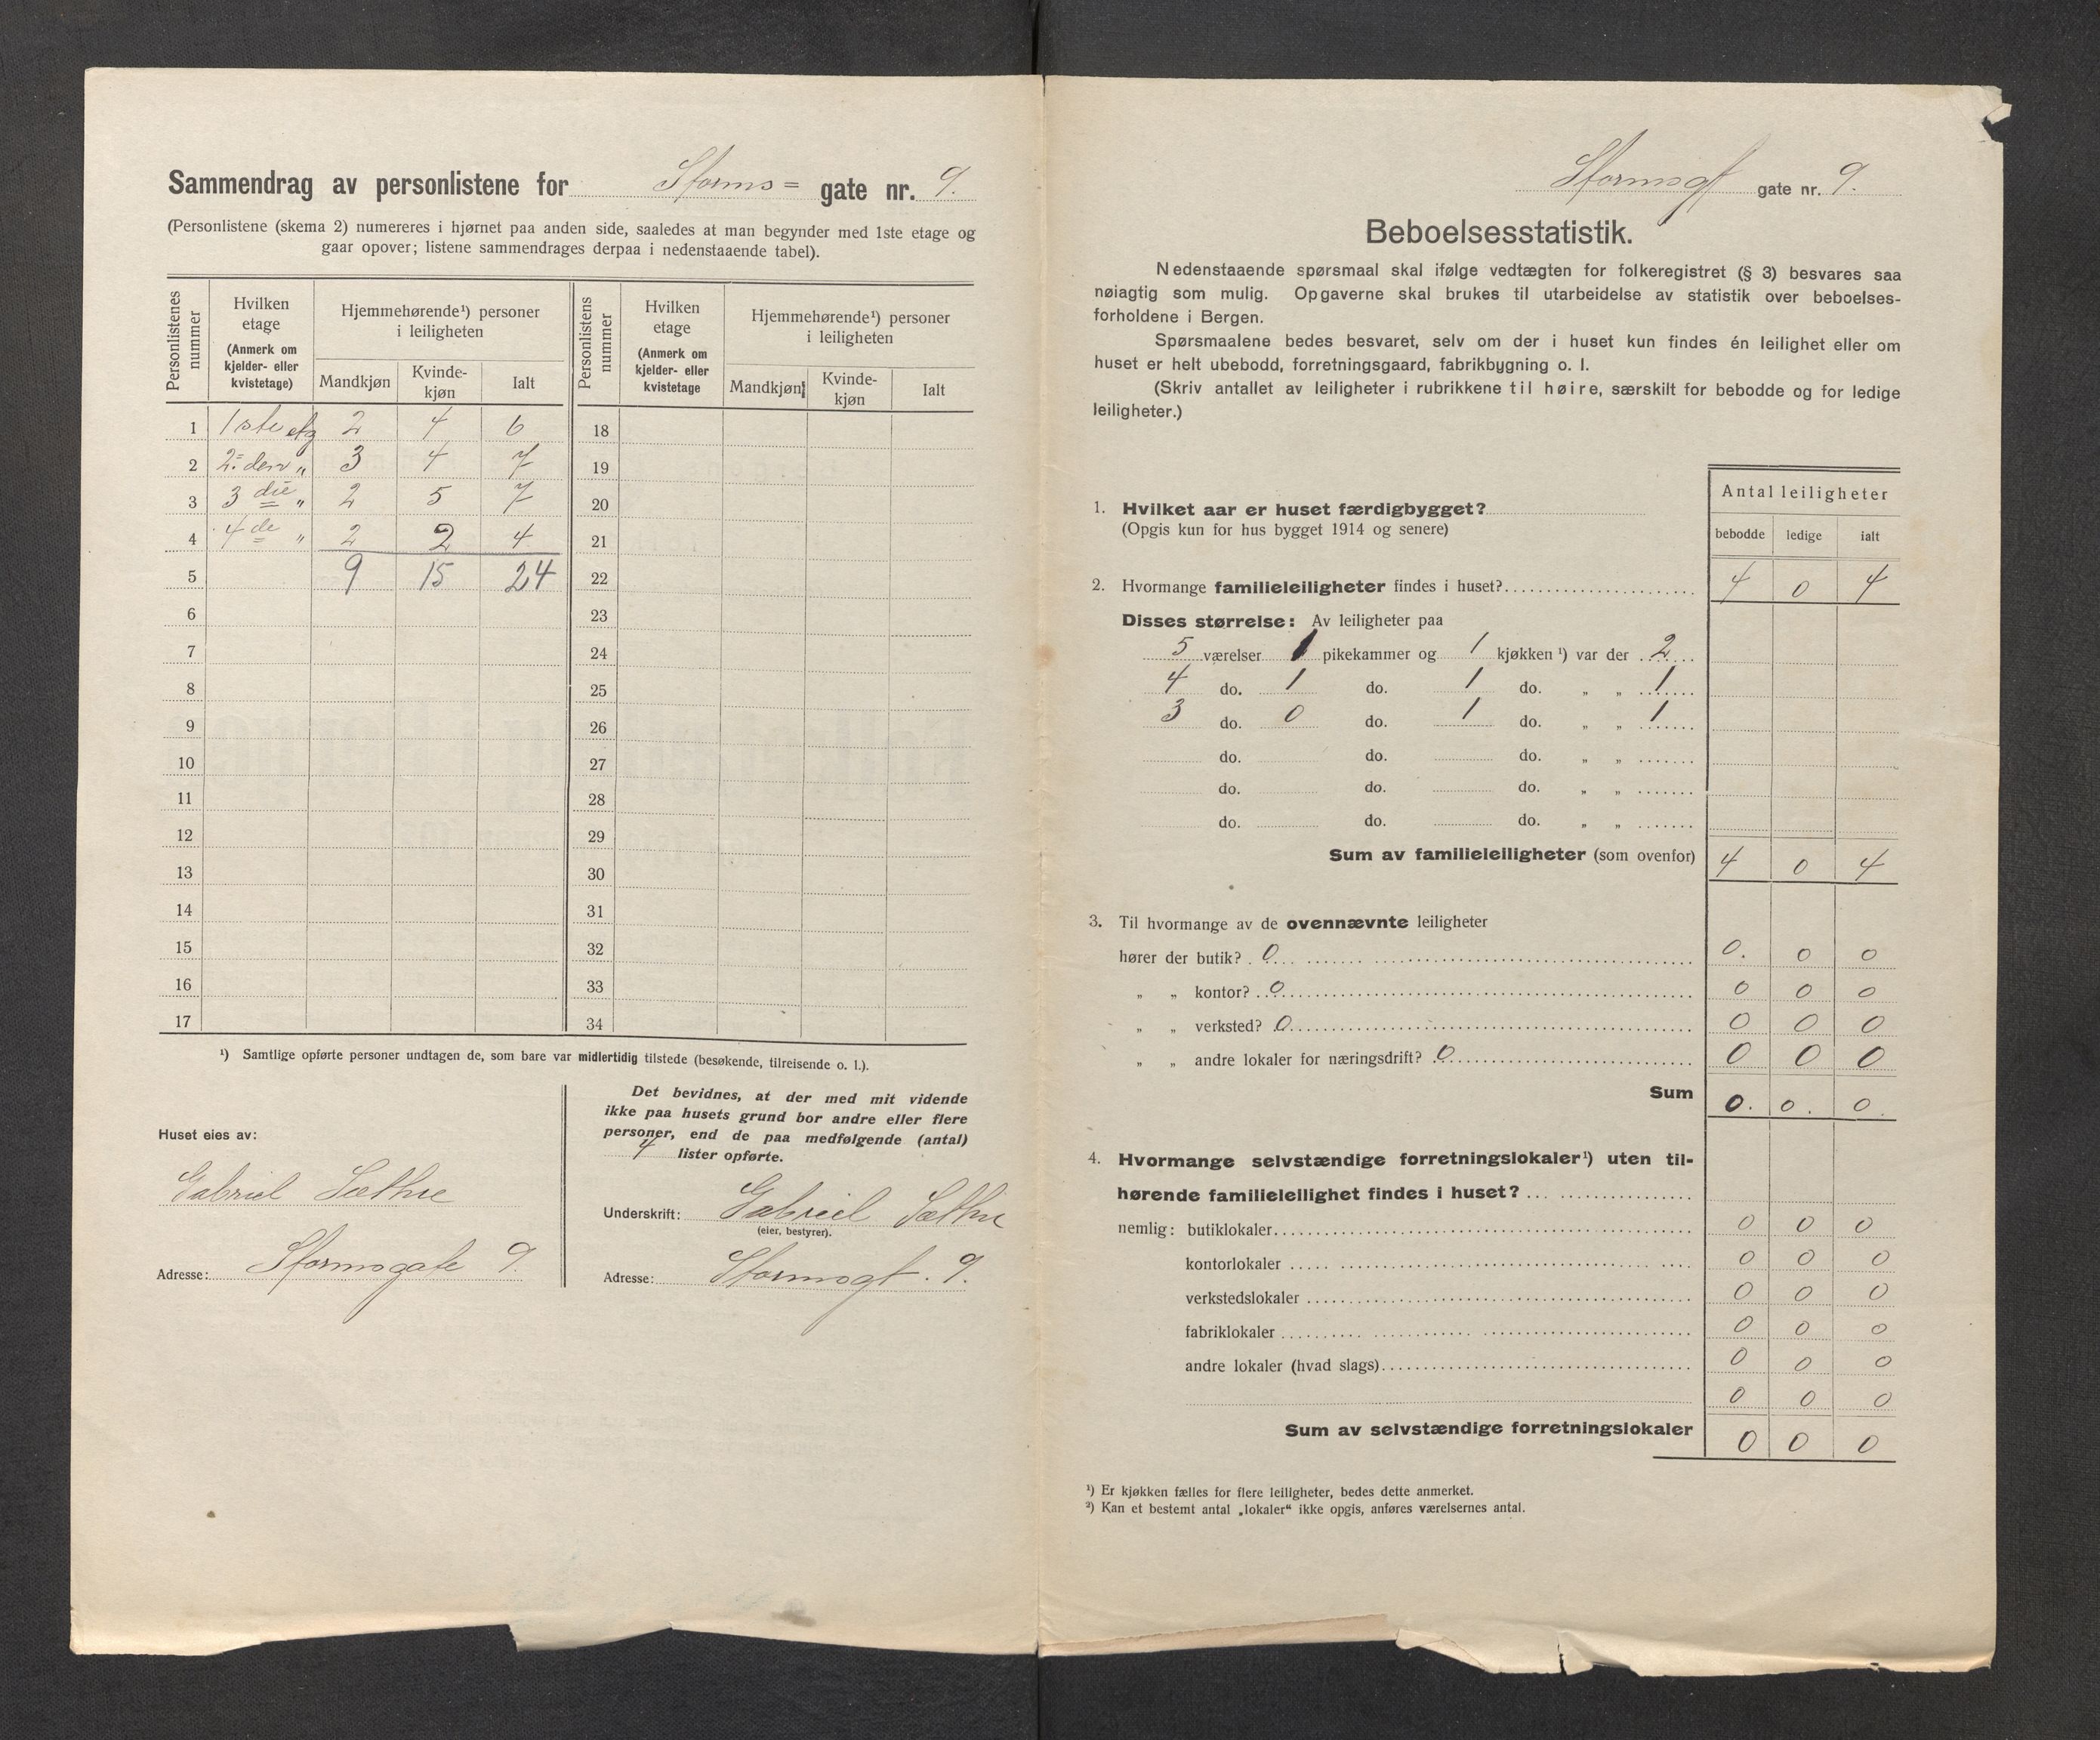 Sammendrag av personlistene for Storms= gate nr. 9.
(Personlistene (skema 2) numereres i hjørnet paa anden side, saaledes at man begynder med 1ste etage og
gaar opover; listene sammendrages derpaa i nedenstaaende tabel).
Personlistenes nummer
Hvilken etage (Anmerk om kjelder- eller kvistetage)
Hjemmehørende¹) personer i leiligheten
Mandkjøn Kvinde-kjøn Ialt
Personlistens nummer
Hvilken etage (Anmerk om kjelder- eller kvistetage
Hjemmehørende¹) personer i leiligheten
Mandkjøn Kvinde-kjøn Ialt
1 1ste etg 2 4 6 18
2 2=den " 3 4 7 19
3 3die " 2 5 7 20
4 4de " 2 2 4 21
5 9 15 24 22
6 23
7 24
8 25
9 26
10 27
11 28
12 29
13 30
14 31
15 32
16 33
17 34
¹) Samtlige opførte personer undtagen de, som bare var midlertidig tilstede (besøkende, tilreisende o. l.).
Huset eies av:
Gabriel Sæthre
Adresse: Stormsgate 9.
Det bevidnes, at der med mit vidende
ikke paa husets grund bor andre eller flere
personer, end de paa medfølgende (antal)
4 lister opførte.
Underskrift: Gabriel Sæthre
(eier, bestyrer).
Adresse: Stormsgt. 9.
Stormsgt gate nr. 9.
Beboelsesstatistik.
Nedenstaaende spørsmaal skal ifølge vedtægten for folkeregistret (§ 3) besvares saa
nøiagtig som mulig. Opgaverne skal brukes til utarbeidelse av statistik over beboelses-
forholdene i Bergen.
Spørsmaalene bedes besvaret, selv om der i huset kun findes én leilighet eller om
huset er helt ubebodd, forretningsgaard, fabrikbygning o. l.
(Skriv antallet av leiligheter i rubrikkene til høire, særskilt for bebodde og for ledige
leiligheter.)
Antal leiligheter
bebodde ledige ialt
1. Hvilket aar er huset færdigbygget?
(Opgis kun for hus bygget 1914 og senere)
2. Hvormange familieleiligheter findes i huset? 4 0 4
Disses størrelse: Av leiligheter paa
5 værelser 1 pikekammer og 1 kjøkken ¹) var der 2
4 do. 1 do. 1 do. „ „ 1
3 do. 0 do. 1 do. „ „ 1
do. do. do. „ „
do. do. do. „ „
do. do. do. „ „
Sum av familieleiligheter (som ovenfor) 4 0 4
3. Til hvormange av de ovennævnte leiligheter
hører der butik? 0 0. 0 0
„ „ kontor? 0 0 0 0
„ „ verksted? 0 0 0 0
„ „ andre lokaler for næringsdrift? 0 0 0 0
Sum 0. 0. 0.
4. Hvormange selvstændige forretningslokaler¹) uten til-
hørende familieleilighet findes i huset?
nemlig: butiklokaler 0 0 0
kontorlokaler 0 0 0
verkstedslokaler 0 0 0
fabriklokaler 0 0 0
andre lokaler (hvad slags) 0 0 0
0 0 0
Sum av selvstændige forretningslokaler 0 0 0
¹) Er kjøkken fælles for flere leiligheter, bedes dette anmerket.
²) Kan et bestemt antal „lokaler“ ikke opgis, anføres værelsernes antal.